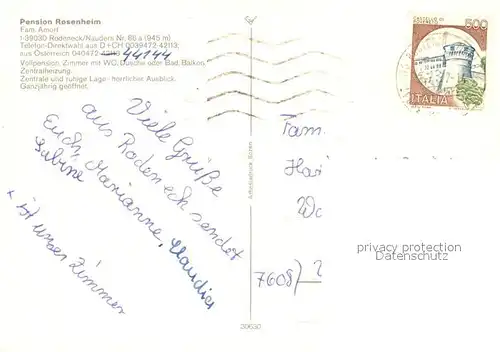 Pension Rosenheim
Fam. Amort
I-39030 Rodeneck/Nauders Nr. 68 a (945 m)
Telefon-Direktwahl aus D + CH 0039472-42113;
aus Österreich 040472-42113 44144
Vollpension, Zimmer mit WC, Dusche oder Bad, Balkon,
Zentralheizung.
Zentrale und ruhige Lage - herrlicher Ausblick.
Ganzjährig geöffnet.
Viele Grüße
aus Rodeneck sendet
Euch, Marianne, Claudia
Sabine
x ist unser Zimmer
500
ITALIA
Fam
7608
privacy protection
Datenschutz
30630